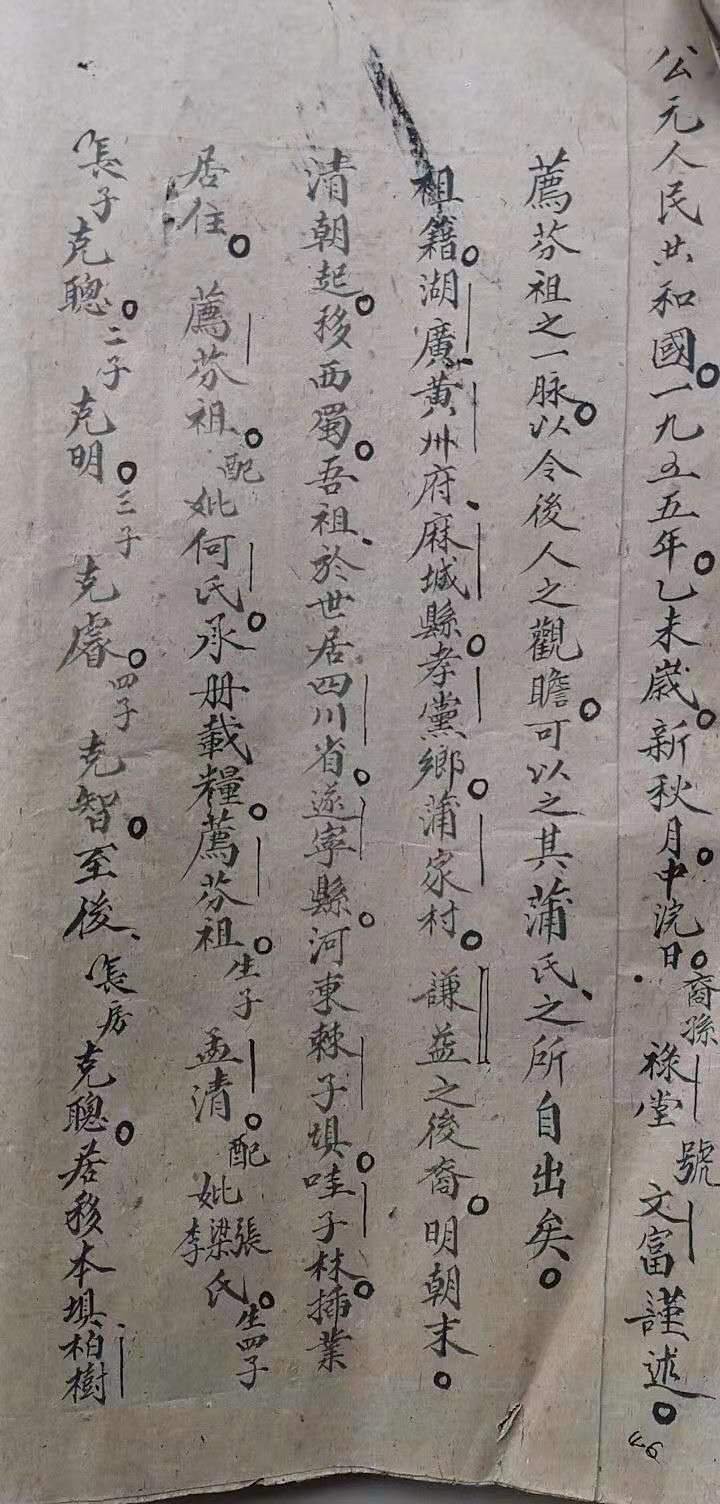 公元人民共和國。一九五五年。乙未嵗。新秋月。中浣日。裔孫祿堂號文富謹述。
薦芬祖之一脉。以令後人之觀瞻。可以之其蒲氏、之所自出矣。
祖籍。湖廣黃州府、麻城縣。孝黨鄉。蒲家村。謙益之後裔。明朝末。
清朝起。移西蜀。吾祖、於世居四川省。遂寧縣。河東棘子埧。哇子林。插業
居住。薦芬祖。配妣何氏。承册載糧。薦芬祖。生子孟清。配妣張梁李氏。生四子
長子克聰。二子克明。三子克睿。四子克智。至後、長房克聰。居移本埧、柏樹
46